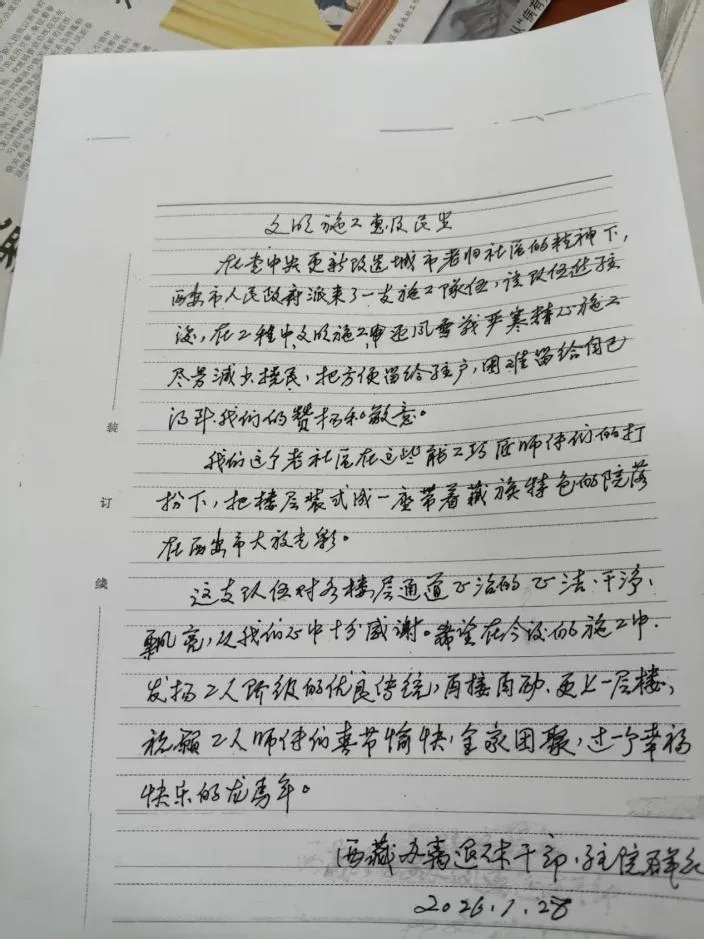 文明施工惠及民生
在党中央更新改造城市老旧社区的精神下，
西安市人民政府派来了一支施工队伍，该队伍进驻
后，在工程中文明施工，冒風雪战严寒精心施工
尽量减少扰民，把方便留给住户，困难留给自己
得到我们的赞扬和敬意。
我们这个老社区在这些能工巧匠师付们的打
扮下，把楼层装式成一座带着藏族特色的院落
在西安市大放光彩。
这支队伍对各楼层通道
整洁、干净、
飘亮，从我们心中十分感谢。希望在今后的施工中，
发扬工人阶级的优良传统，再接再励、更上一层楼，
祝願工人师付们春节愉快，全家团聚，过一个幸福
快乐的龙马年。
西藏办离退休干部、住院群众
2026.1.28
装
订
线